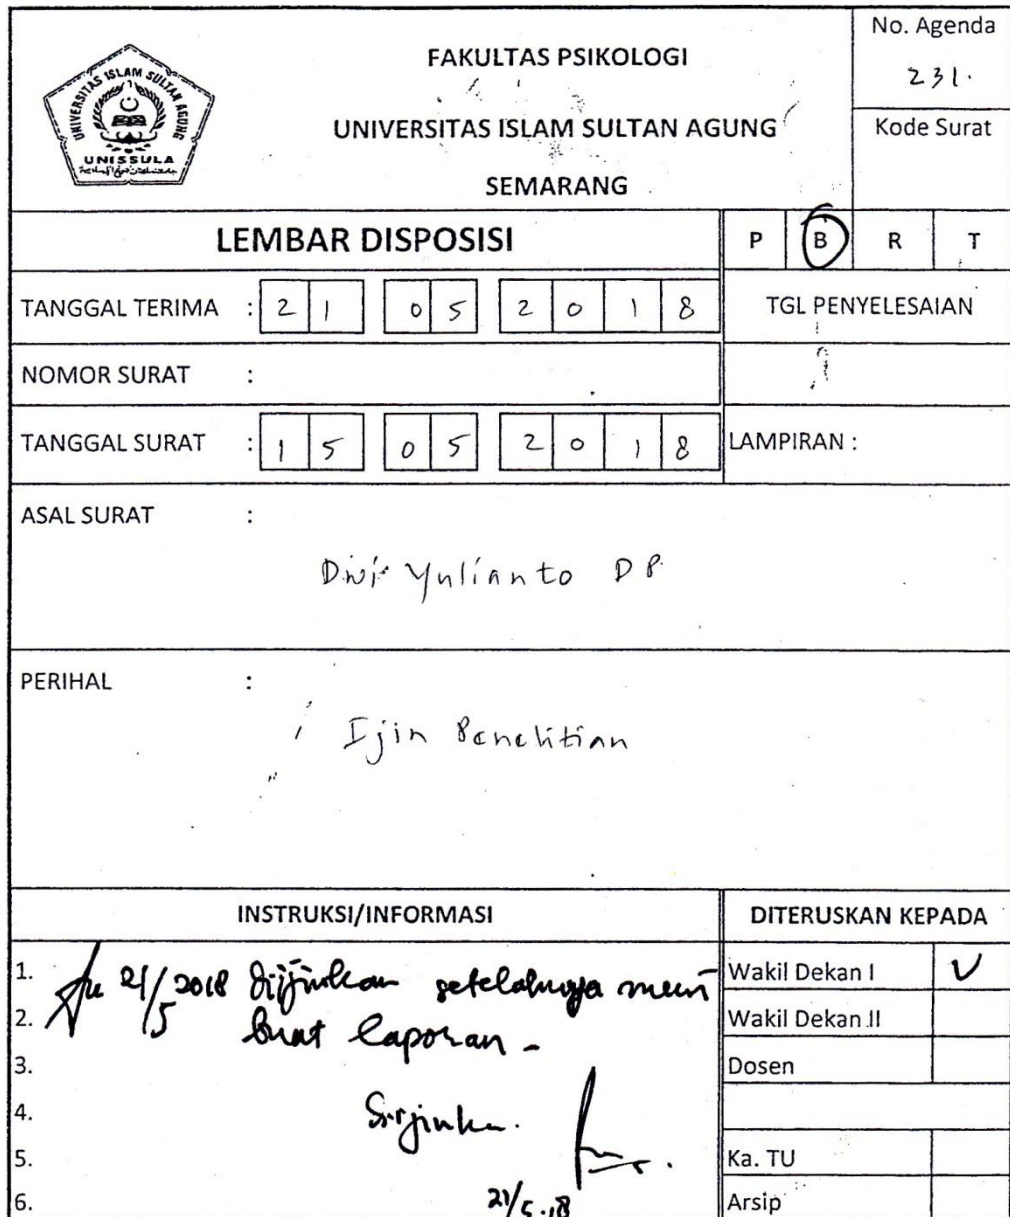 No. Agenda
231.
Kode Surat
UNIVERSITAS ISLAM SULTAN AGUNG
UNISSULA
FAKULTAS PSIKOLOGI
UNIVERSITAS ISLAM SULTAN AGUNG
SEMARANG
LEMBAR DISPOSISI
P B R T
TANGGAL TERIMA : 21 05 2018
TGL PENYELESAIAN
NOMOR SURAT :
TANGGAL SURAT : 15 05 2018
LAMPIRAN :
ASAL SURAT :
Dwi Yulianto DP
PERIHAL :
Ijin Penelitian
INSTRUKSI/INFORMASI
DITERUSKAN KEPADA
1. 21/5 2018 Diijinkan setelahnya mem
2. buat laporan -
3.
4. Diijinkan.
5.
6. 21/5.18
Wakil Dekan I V
Wakil Dekan II
Dosen
Ka. TU
Arsip